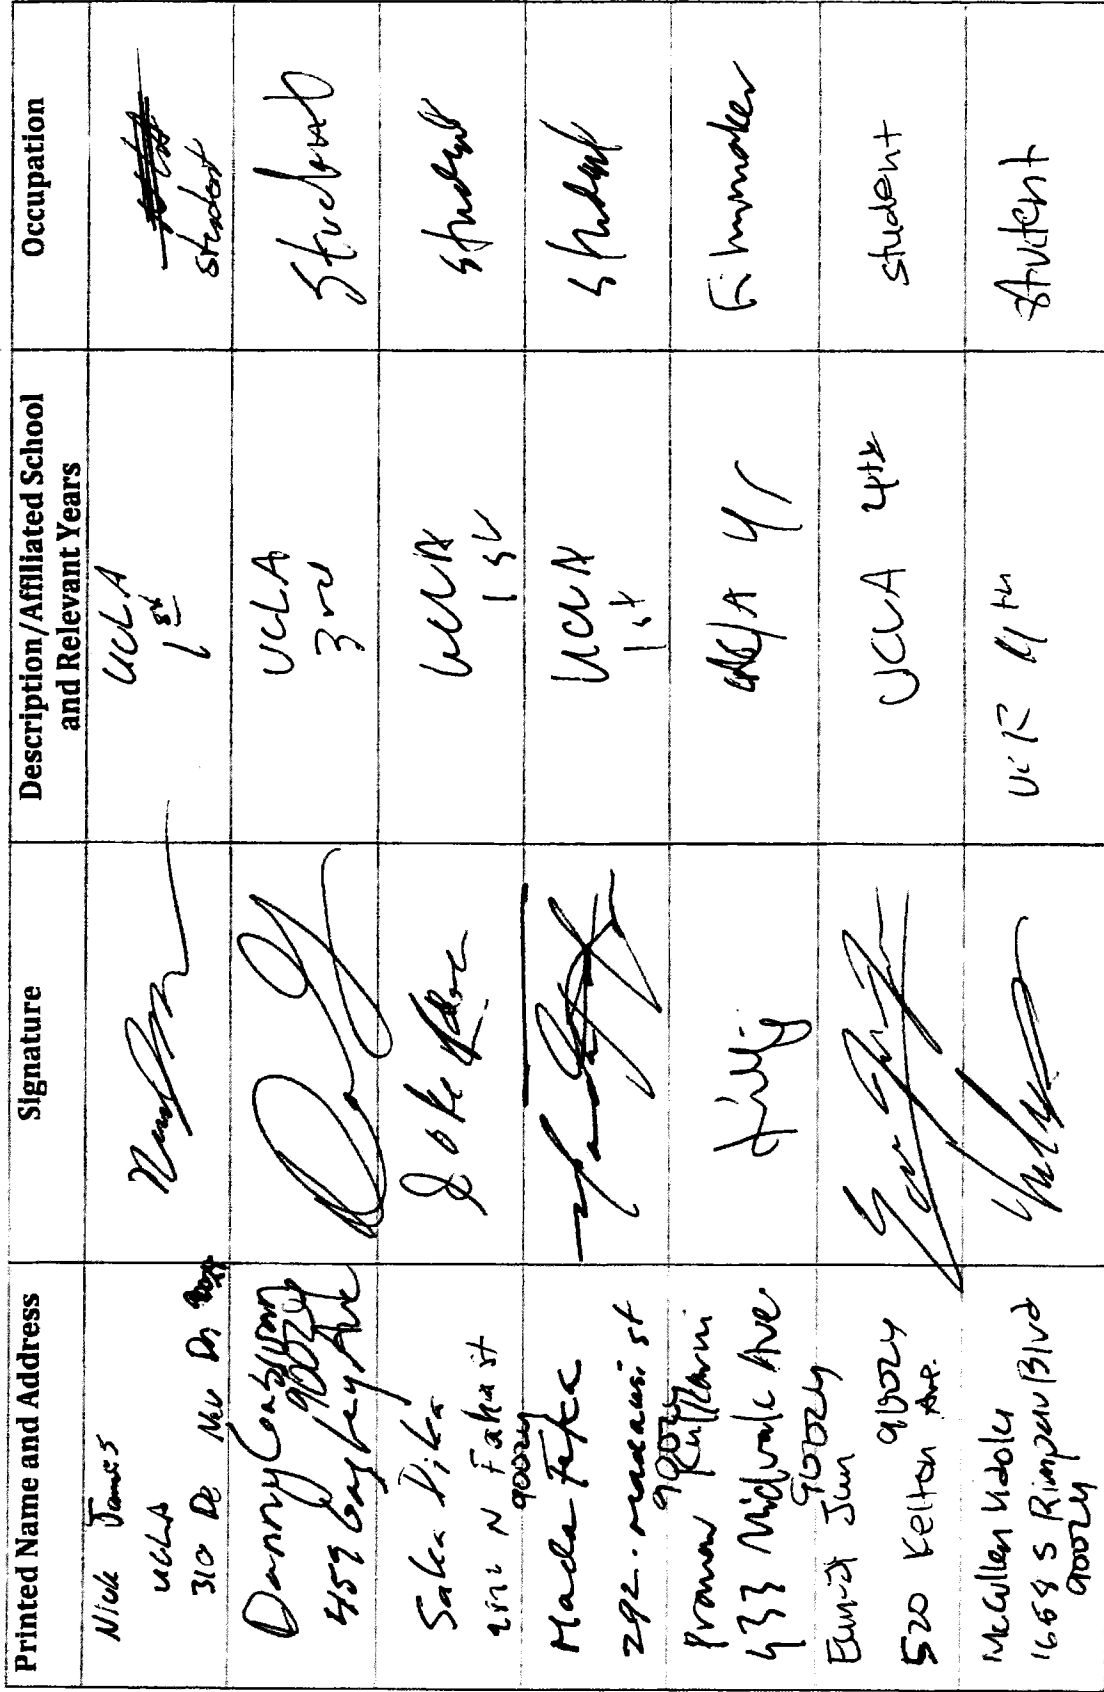 Printed Name and Address
Signature
Description/Affiliated School
and Relevant Years
Occupation
Nick James
UCLA
310 De Neve Dr
UCLA
1st
student
Danny
90024
459 Gayley Ave
UCLA
3rd
Student
Saka Dika
N
90024
UCLA
1st
student
Mada
292
st
90024
UCLA
1st
student
Pranav Kulkarni
433 Midvale Ave.
90024
UCLA 4yr
Filmmaker
Jun
520 Kelton Ave.
90024
UCLA 4th
student
McCullen Udolu
1658 S Rimpau Blvd
90024
UCR 4th
student